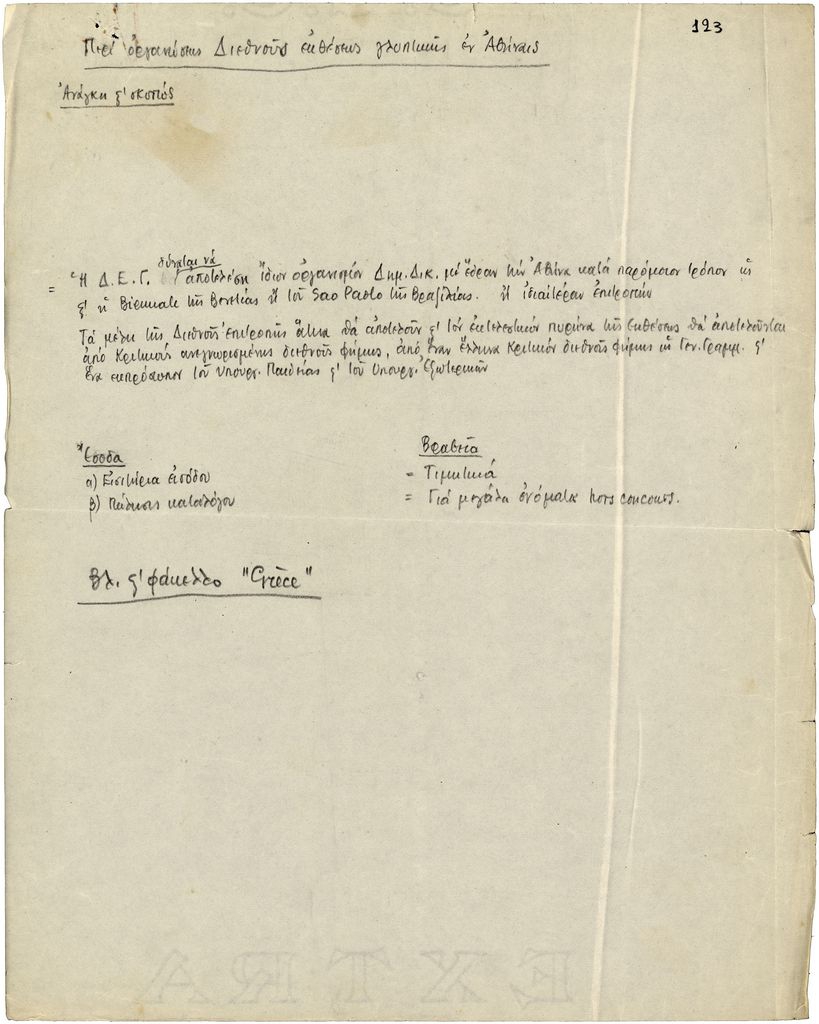 123
Περὶ ὀργανώσεως Διεθνοῦς ἐκθέσεως γλυπτικῆς ἐν Ἀθήναις
Ἀνάγκη ϛ' σκοπός
δύναται νά
= Ἡ Δ.Ε.Γ. ἀποτελέση ἴδιον ὀργανισμόν Δημ. Δικ. μέ ἕδραν τήν Ἀθήνα κατά παρόμοιον τρόπον ὡς
ϛ' ἡ Biennale τῆς Βενετίας ἤ τοῦ Sao Paolo τῆς Βραζιλίας. ἤ ἰδιαιτέραν ἐπιτροπήν
Τά μέλη τῆς Διεθνοῦς ἐπιτροπῆς ἅτινα θά ἀποτελοῦν ϛ' τόν ἐκτελεστικόν πυρῆνα τῆς ἐκθέσεως θά ἀποτελοῦνται
ἀπό Κριτικούς ἀνεγνωρισμένης διεθνοῦς φήμης, ἀπό ἕναν ἕλληνα κριτικόν διεθνοῦς φήμης ὡς Γεν. Γραμμ. ϛ'
ἕνα ἐκπρόσωπον τοῦ Υπουργ. Παιδείας ϛ' τοῦ Υπουργ. Ἐξωτερικῶν
Ἔσοδα
α) Εἰσιτήρια εἰσόδου
β) Πώλησις καταλόγου
Βραβεῖα
= Τιμητικά
= Γιά μεγάλα ὀνόματα hors concours.
Βλ. ϛ' φάκελλο "Grèce"
EXTRA